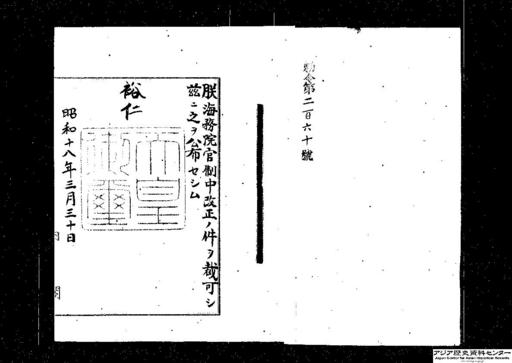 勅令第二百六十號
朕海務院官制中改正ノ件ヲ裁可シ
茲ニ之ヲ公布セシム
裕仁
天皇御璽
昭和十八年三月三十日
内閣
アジア歴史資料センター
Japan Center for Asian Historical Records